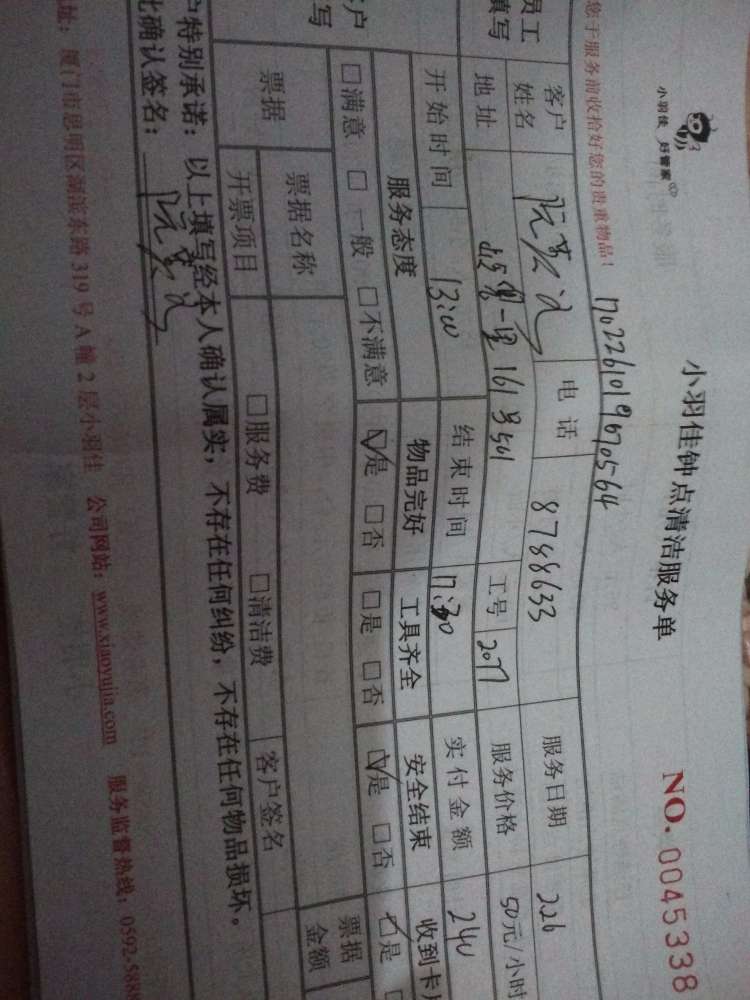 小羽佳 好管家
小羽佳钟点清洁服务单
NO. 0045338
您于服务前收拾好您的贵重物品!
n02261019670564
员工
填写
客户
姓名
电话
8788633
服务日期
226
地址
161号501
工号
2077
服务价格
50元/小时
开始时间
13:00
结束时间
17:30
实付金额
240
客户
写
服务态度
物品完好
工具齐全
安全结束
收到卡片
□满意 □一般 □不满意
☑是 □否
□是 □否
☑是 □否
☑是
票据
票据名称
票据
金额
开票项目
□服务费 □清洁费
客户签名
户特别承诺：以上填写经本人确认属实，不存在任何纠纷，不存在任何物品损坏。
此确认签名：
地址：厦门市思明区湖滨东路319号A幢2层小羽佳 公司网站：www.xiaoyujia.com 服务监督热线：0592-5888